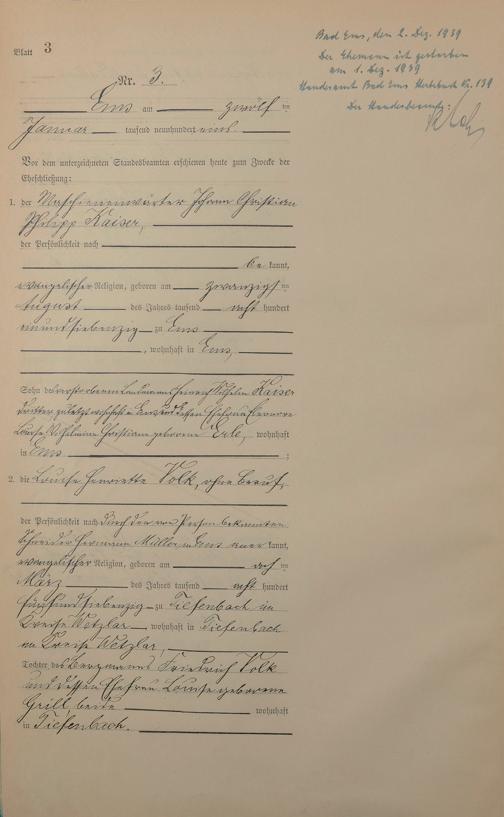 Blatt 3
Bad Ems, den 2. Dez. 1939
Der Ehemann ist gestorben
am 1. Dez. 1939
Standesamt Bad Ems Sterbebuch Nr. 139
Der Standesbeamte:
Nr. 3.
Ems am zwölf ten
Januar tausend neunhundert eins
Vor dem unterzeichneten Standesbeamten erschienen heute zum Zwecke der
Eheschließung:
1. der Maschinenwärter Johann Christian
Philipp Kaiser,
der Persönlichkeit nach
be kannt,
evangelischer Religion, geboren am zwanzigsten
August des Jahres tausend acht hundert
einundsiebenzig zu Ems
, wohnhaft in Ems,
Sohn des verstorbenen Landmanns Heinrich Wilhelm Kaiser
dritter, zuletzt wohnhaft in Ems und dessen Ehefrau Eleonore
Louise Wilhelmine Christiane geborene Erle, wohnhaft
in Ems ;
2. die Louise Henriette Volk, ohne Beruf,
der Persönlichkeit nach durch den von Person bekannten
Schneider Hermann Müller in Ems aner kannt,
evangelischer Religion, geboren am ten
März des Jahres tausend acht hundert
fünfundsiebenzig zu Tiefenbach im
Kreise Wetzlar wohnhaft in Tiefenbach
im Kreise Wetzlar,
Tochter des Bergmanns Friedrich Volk
und dessen Ehefrau Louise geborene
Grill, beide wohnhaft
in Tiefenbach.